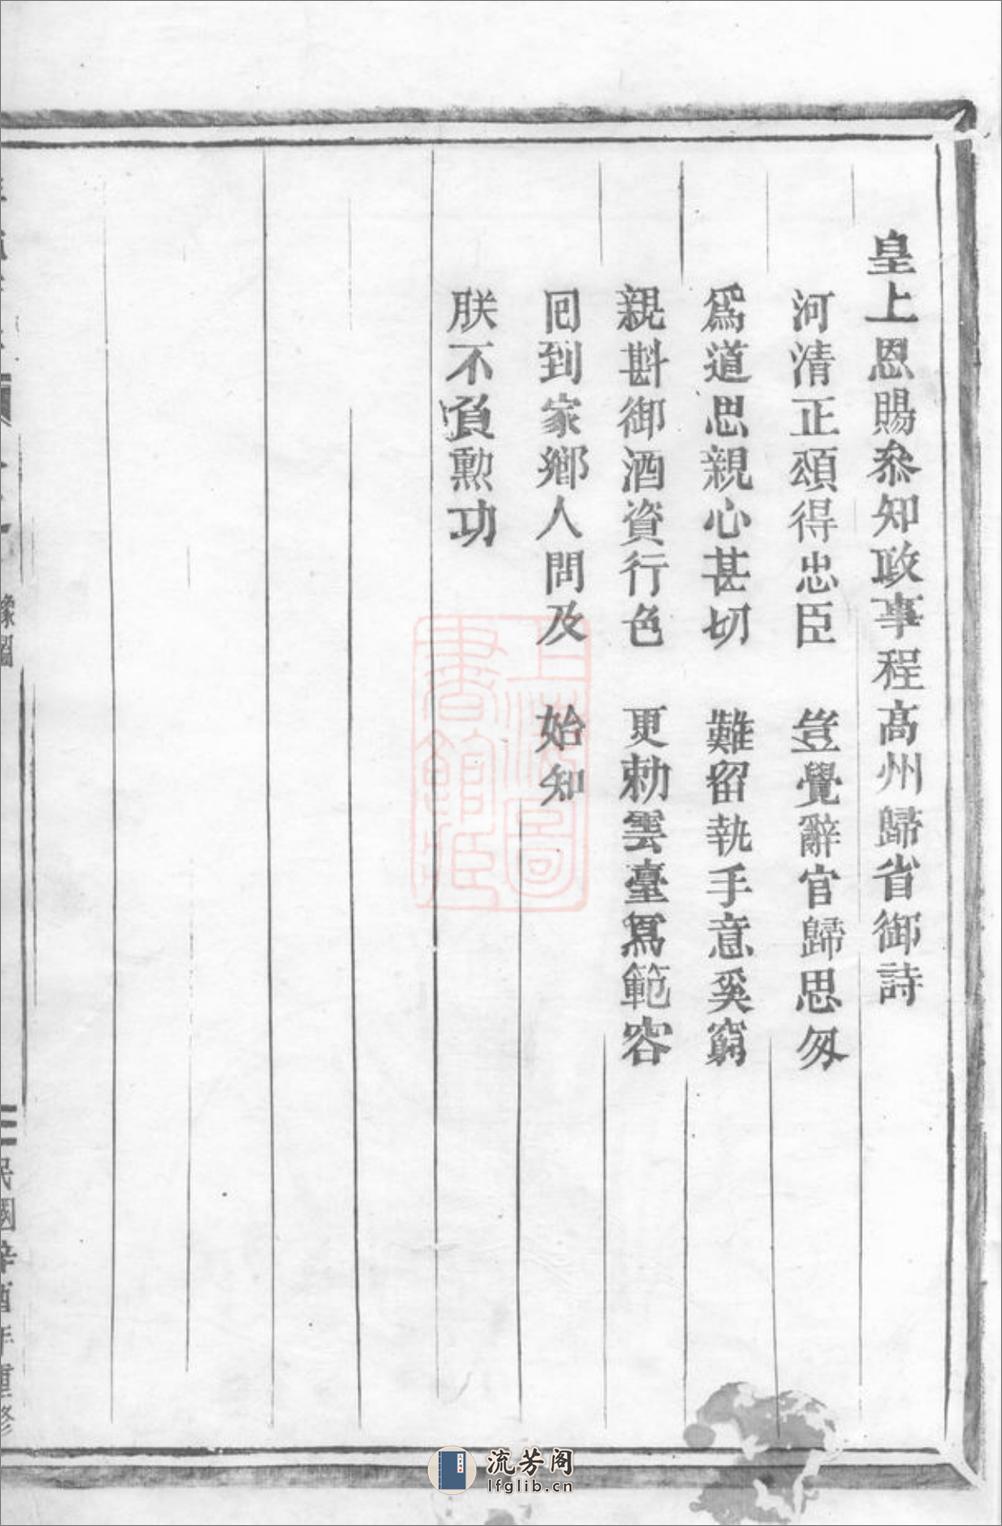 皇上恩賜叅知政事程高州歸省御詩
河清正頌得忠臣　豈覺辭官歸思匆
爲道思親心甚切　難留執手意奚窮
親斟御酒資行色　更勅雲臺寫範容
囘到家鄉人問及　始知
朕不負勲功
像圖
民國辛酉年重修
上海圖書館藏
流芳阁
lfglib.cn